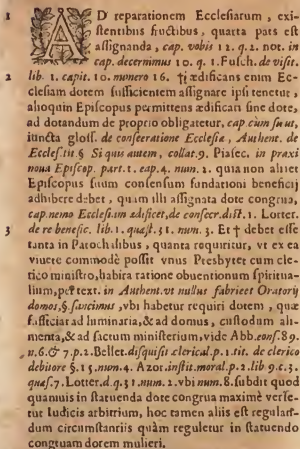 1 AD reparationem Ecclesiarum, exi-
stentibus fructibus, quarta pars est
assignanda, cap. vobis 12. q. 2. not. in
cap. decernimus 10. q. 1. Fusch. de visit.
2 lib. 1. capit. 10. numero 16. †i ædificans enim Ec-
clesiam dotem sufficientem assignare ipsi tenetur,
alioquin Episcopus permittens ædificari sine dote,
ad dotandum de proprio obligatur, cap. cum sicut,
iuncta gloss. de consecratione Ecclesiæ, Authent. de
Eccles. tit § Si quis autem, collat. 9. Piasec. in praxi
noua Episcop. part. 1. cap. 4. num. 2. quia non aliter
Episcopus suum consensum fundationi beneficij
adhibere debet, quam illi assignata dote congrua,
cap. nemo Ecclesiam ædificet, de consecr. dist. 1. Lotter.
3 de re benefic. lib. 1. quæst. 31. num. 3. Et † debet esse
tanta in Parochialibus, quanta requiritur, vt ex ea
viuere commodè possit vnus Presbyter cum cle-
rico ministro, habita ratione obuentionum spiritua-
lium, per text. in Authent. vt nullus fabricet Oratorij
domos, §. sancimus, vbi habetur requiri dotem, quæ
sufficiat ad luminaria, & ad domus, custodum ali-
menta, & ad sacrum ministerium, vide Abb. cons. 89.
n. 6. & 7. p. 2. Bellet. disquisit. clerical. p. 1. tit. de clerico
debitore §. 15. num. 4. Azor. instit. moral. p. 2. lib 9. c. 3.
quæs. 7. Lotter. d. q. 31. num. 2. vbi num. 8. subdit quod
quamuis in statuenda dote congrua maximè verse-
tur Iudicis arbitrium, hoc tamen aliis est regulan-
dum circumstantiis quàm reguletur in statuendo
congruam dotem mulieri.